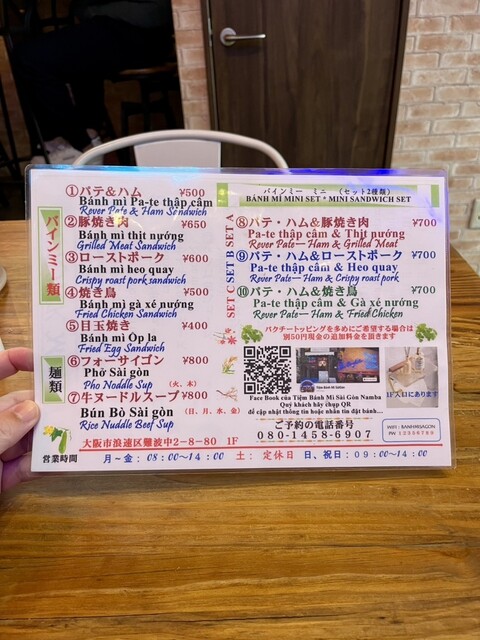 バインミー類
①パテ&ハム ¥500
Bánh mì Pa-te thập cẩm
Rever Pate & Ham Sandwich
②豚焼き肉 ¥650
Bánh mì thịt nướng
Grilled Meat Sandwich
③ローストポーク ¥600
Bánh mì heo quay
Crispy roast pork sandwich
④焼き鳥 ¥500
Bánh mì gà xé nướng
Fried Chicken Sandwich
⑤目玉焼き ¥400
Bánh mì Ốp la
Fried Egg Sandwich
麺類
⑥フォーサイゴン ¥800
Phở Sài gòn
Pho Noddle Sup (火、木)
⑦牛ヌードルスープ ¥800
Bún Bò Sài gòn (日、月、水、金)
Rice Nuddle Beef Sup
バインミー ミニ (セット2種類)
BÁNH MÌ MINI SET * MINI SANDWICH SET
SET A
⑧パテ・ハム&豚焼き肉 ¥700
Pa-te thập cẩm & Thịt nướng
Rever Pate－Ham & Grilled Meat
SET B
⑨パテ・ハム&ローストポーク ¥700
Pa-te thập cẩm & Heo quay
Rever Pate－Ham & Crispy roast pork
SET C
⑩パテ・ハム&焼き鳥 ¥700
Pa-te thập cẩm & Gà xé nướng
Rever Pate－Ham & Fried Chicken
パクチートッピングを多めにご希望する場合は
別50円現金の追加料金を頂きます
Tiệm Bánh Mì SàiGòn
1F入口にあります
Face Book của Tiệm Bánh Mì Sài Gòn Namba
Quý khách hãy chụp QR
để cập nhật thông tin hoặc nhắn tin đặt bánh....
ご予約の電話番号
080-1458-6907
WIFI : BANHMISAIGON
PW : 12336789
大阪市浪速区難波中2－8－80 1F
営業時間 月～金: 08:00～14:00 土: 定休日 日、祝日:09:00～14:00